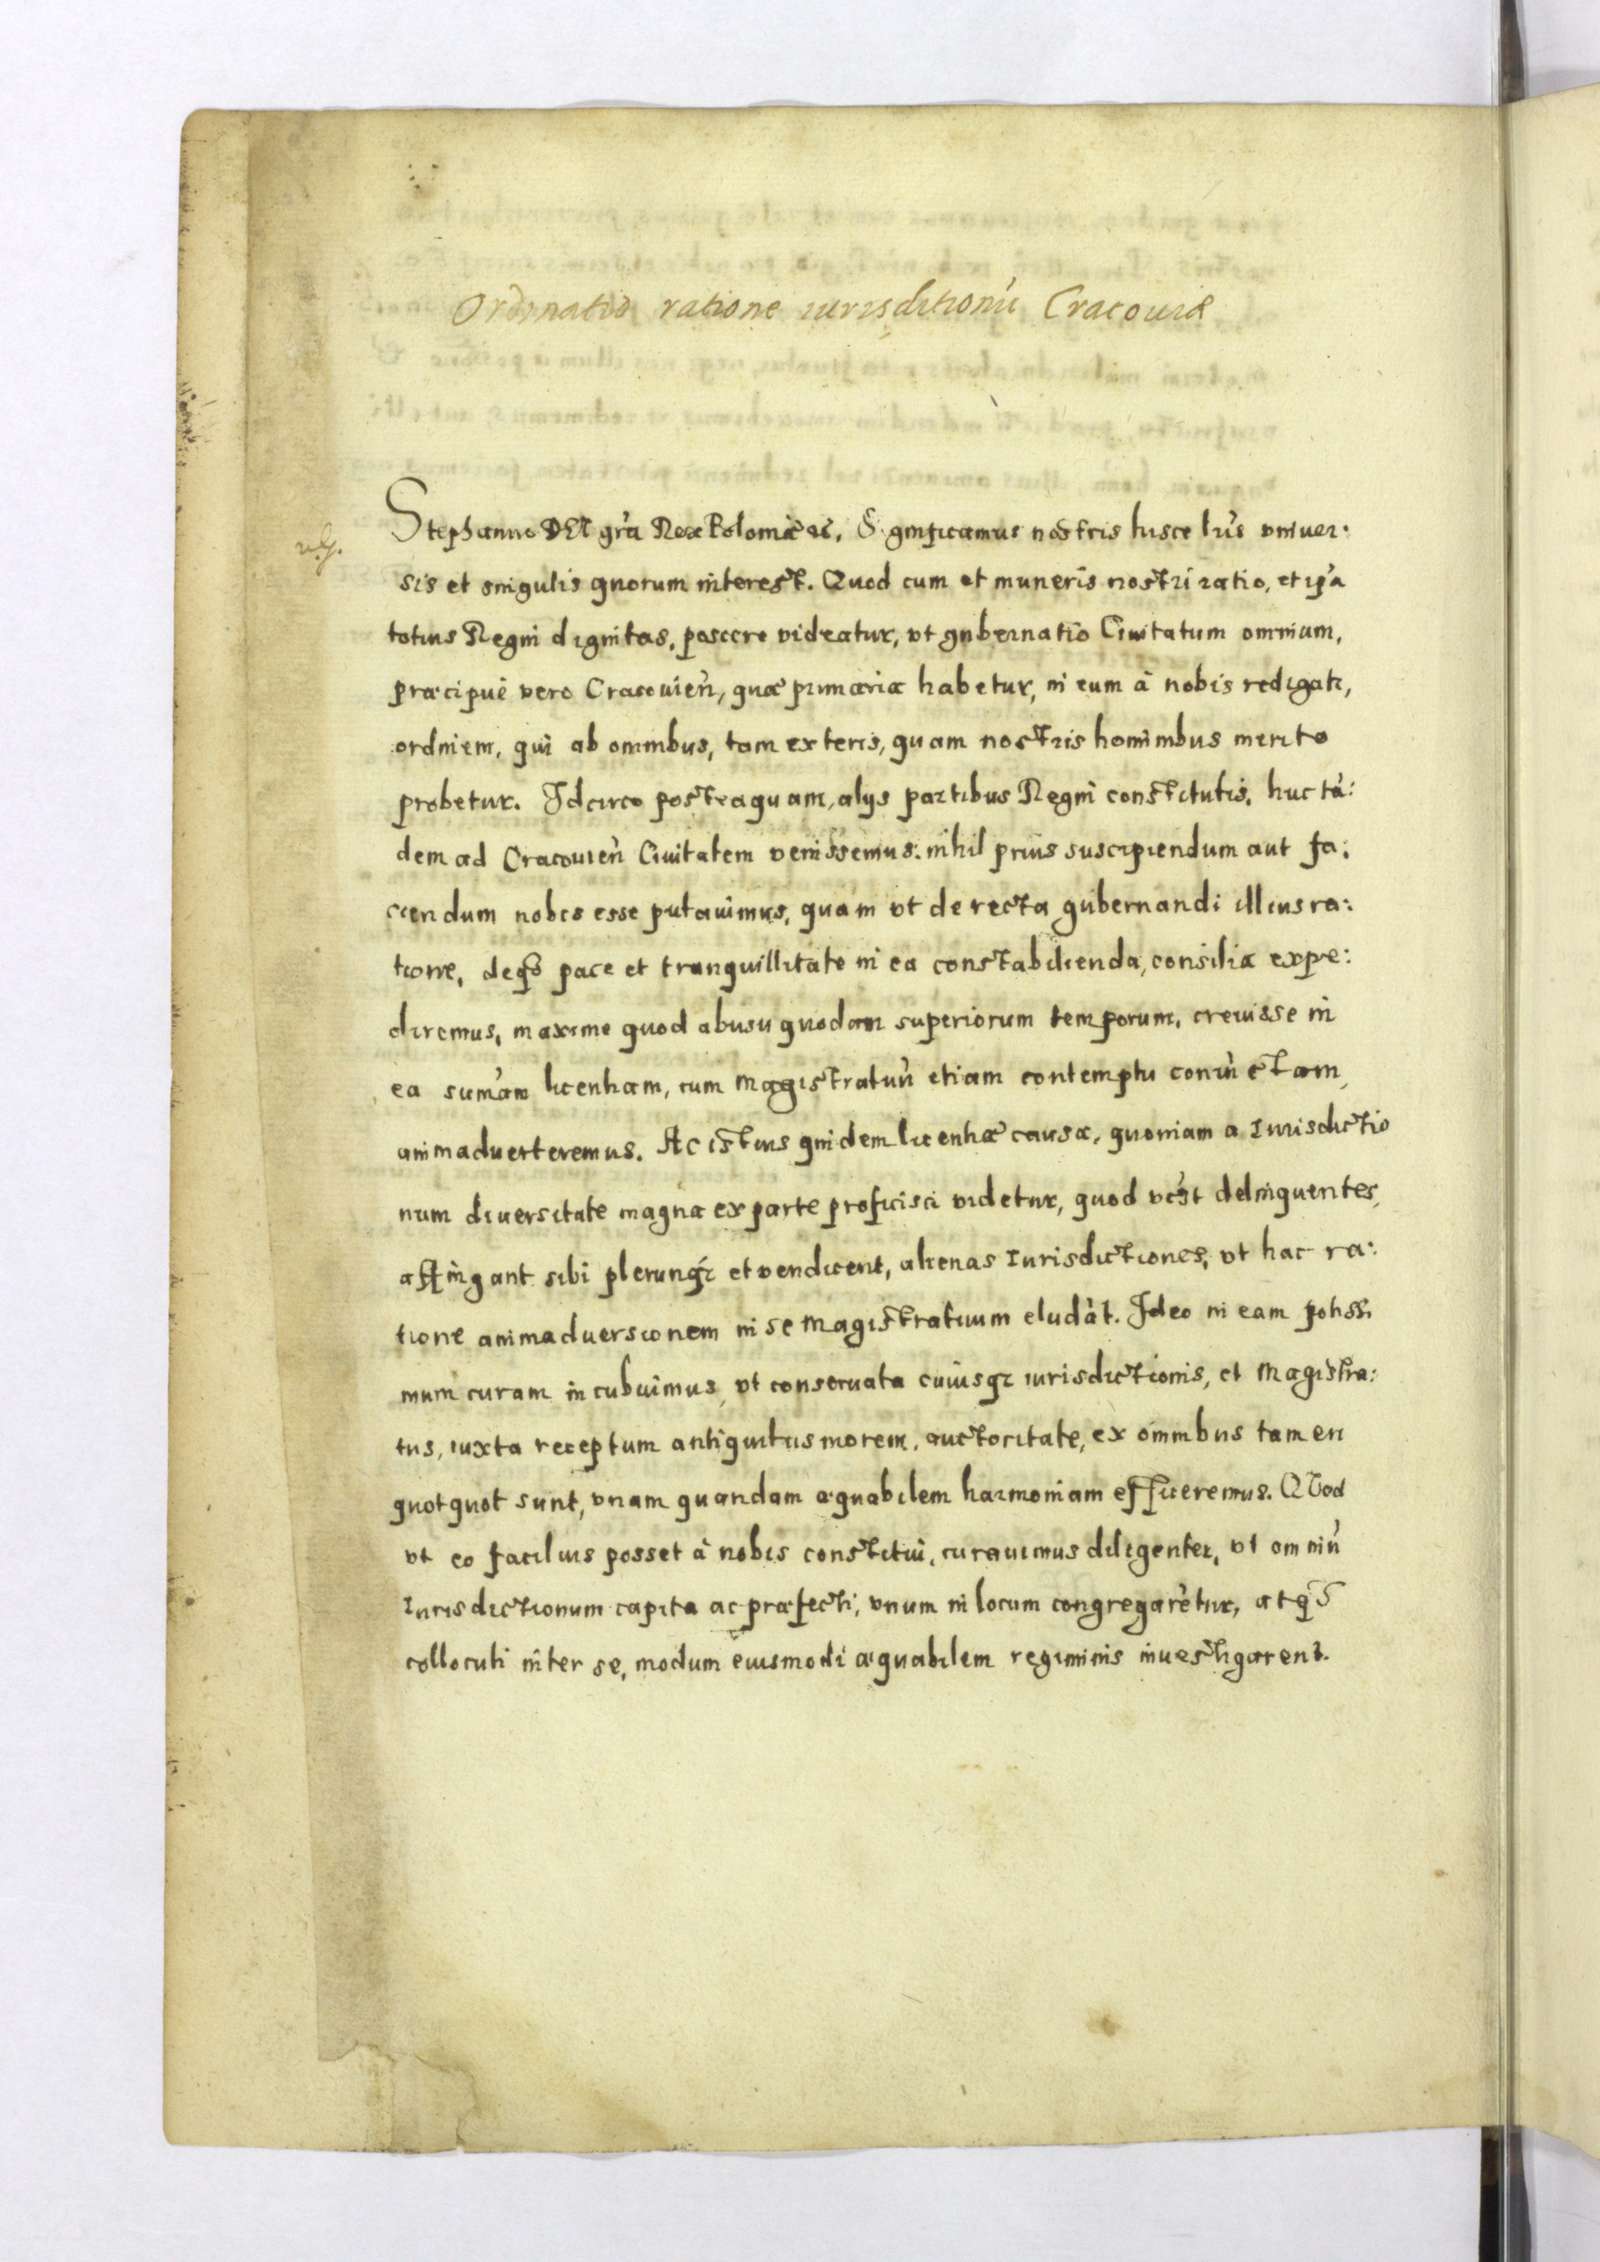 Ordinatio ratione iurisditionũ Cracouiæ
Stephanus DEI grã Rex Poloniæ etc. Significamus nostris hisce lr̃is vniuer:
sis et singulis quorum interest. Quod cum et muneris nostri ratio, et ip̃a
totius Regni dignitas, poscere videatur, vt gubernatio Ciuitatum omnium,
præcipuè vero Cracouieñ, quæ primaria habetur, in eum à nobis redigati,
ordinem, qui ab omnibus, tam exteris, quam nostris hominibus merito
probetur. Idcirco posteaquam, alijs partibus Regni constitutis, huc tã:
dem ad Cracouieñ Ciuitatem venissemus: nihil prius suscipiendum aut fa:
ciendum nobis esse putauimus, quam vt de recta gubernandi illius ra:
tione, deq; pace et tranquillitate in ea constabilienda, consilia expe:
diremus, maxime quod abusu quodam superiorum temporum, creuisse in
ea sum̃am licentiam, cum Magistratuũ etiam contemptu coniũctam,
animaduerteremus. Ac istius quidem licentiæ causa, quoniam a Iurisdictio
num diuersitate magna ex parte proficisci videtur, quod delinquentes,
affingant sibi plerunq; et vendicent, alienas Iurisdictiones, vt hac ra:
tione animaduersionem in se Magistratuum eludãt. Ideo in eam potissi
mum curam incubuimus, vt conseruata cuiusq; iurisdictionis, et Magistra:
tus, iuxta receptum antiquitus morem, auctoritate, ex omnibus tamen
quotquot sunt, vnam quandam æquabilem harmoniam efficeremus. QVod
vt eo facilius posset à nobis constitui, curauimus diligenter, vt omniũ
Iurisdictionum capita ac præfecti, vnum in locum congregarẽtur, atq;
collocuti inter se, modum eiusmodi æquabilem regiminis inuestigarent.